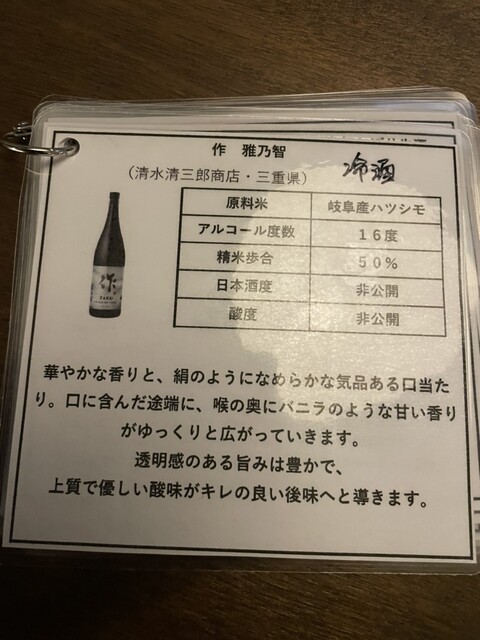 作 雅乃智
(清水清三郎商店・三重県)
冷酒
原料米 岐阜産ハツシモ
アルコール度数 16度
精米歩合 50%
日本酒度 非公開
酸度 非公開
作
ZAKU
華やかな香りと、絹のようになめらかな気品ある口当た
り。口に含んだ途端に、喉の奥にバニラのような甘い香り
がゆっくりと広がっていきます。
透明感のある旨みは豊かで、
上質で優しい酸味がキレの良い後味へと導きます。